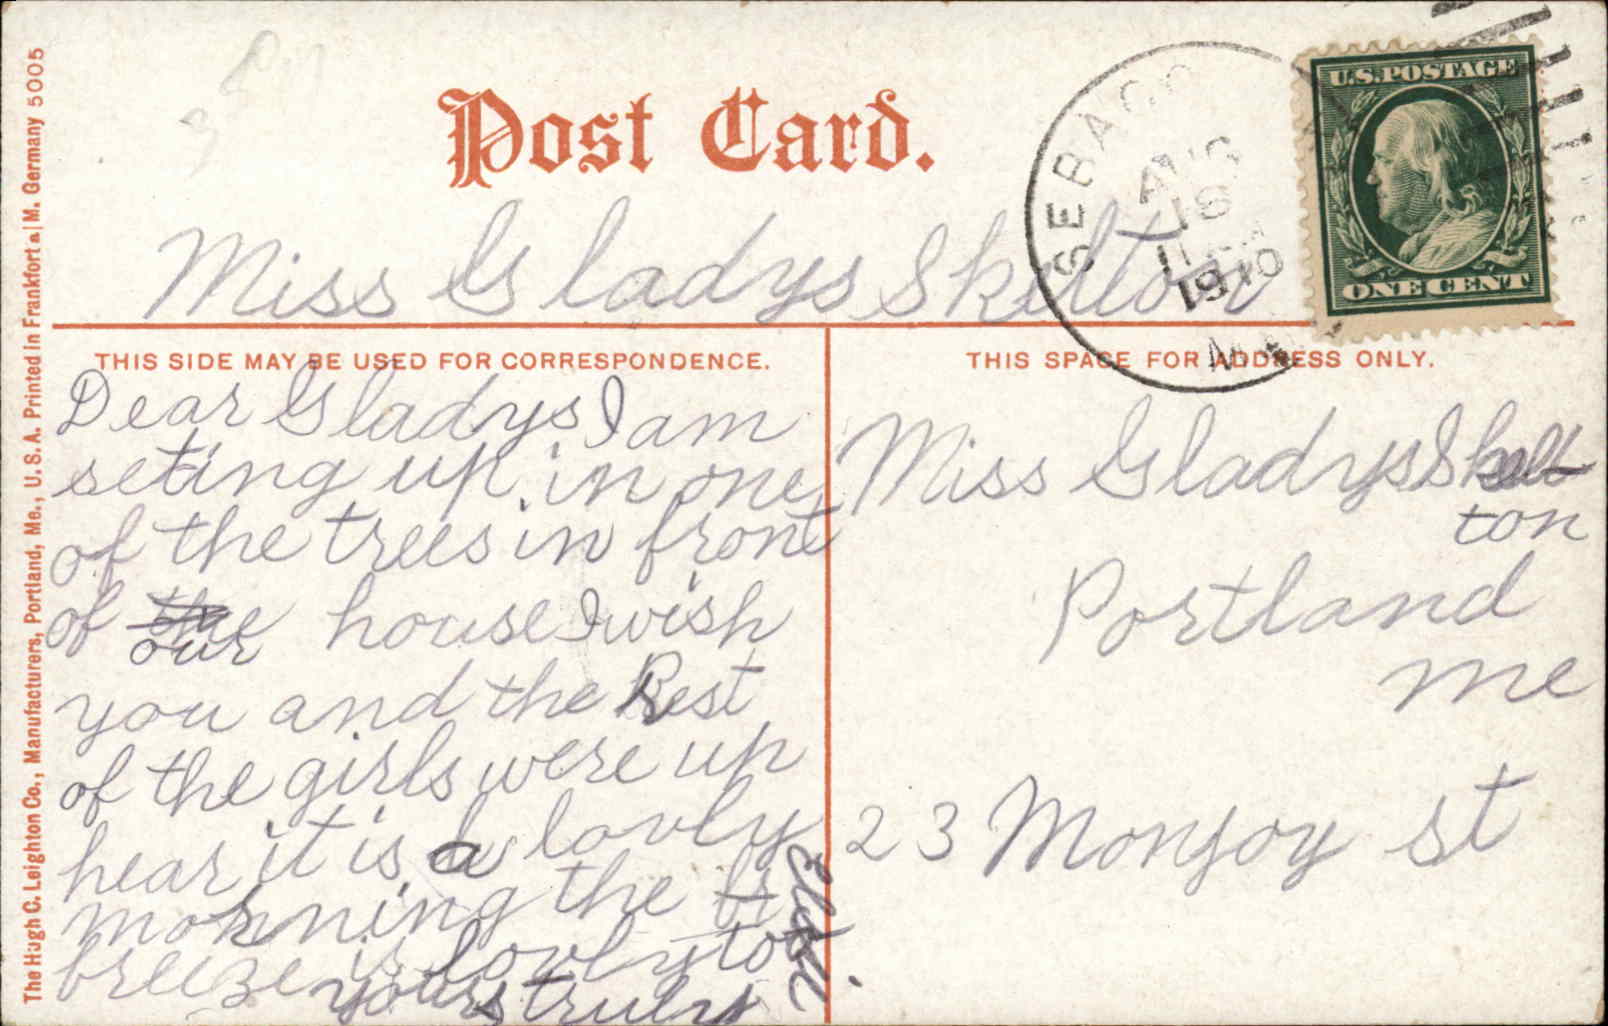 Post Card.
SEBAGO
AUG
16
1910
U.S. POSTAGE
ONE CENT
Miss Gladys Skelton
THIS SIDE MAY BE USED FOR CORRESPONDENCE.
Dear Gladys I am
seting up in one
of the trees in front
of the house I wish
our
you and the Rest
of the girls were up
hear it is a lovly
morning the br
breeze is lovly to
yours truly
Elsie
THIS SPACE FOR ADDRESS ONLY.
Miss Gladys Skell
ton
Portland
me
23 Monjoy st
The Hugh C. Leighton Co., Manufacturers, Portland, Me., U. S. A. Printed in Frankfort a|M. Germany 5005